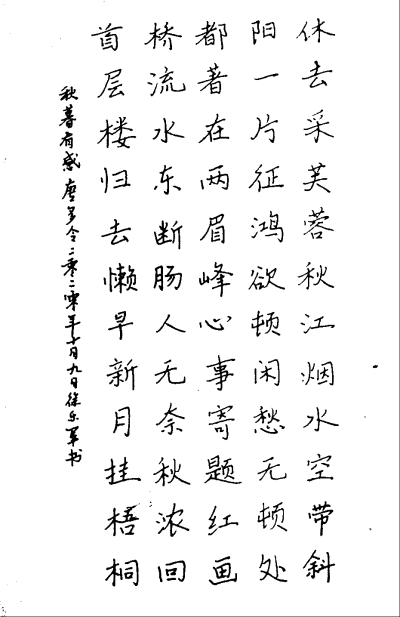 休去采芙蓉秋江烟水空带斜
阳一片征鸿欲顿闲愁无顿处
都著在两眉峰心事寄题红画
桥流水东断肠人无奈秋浓回
首层楼归去懒早新月挂梧桐
秋暮有感唐多令二零二零年十月九日徐乐军书